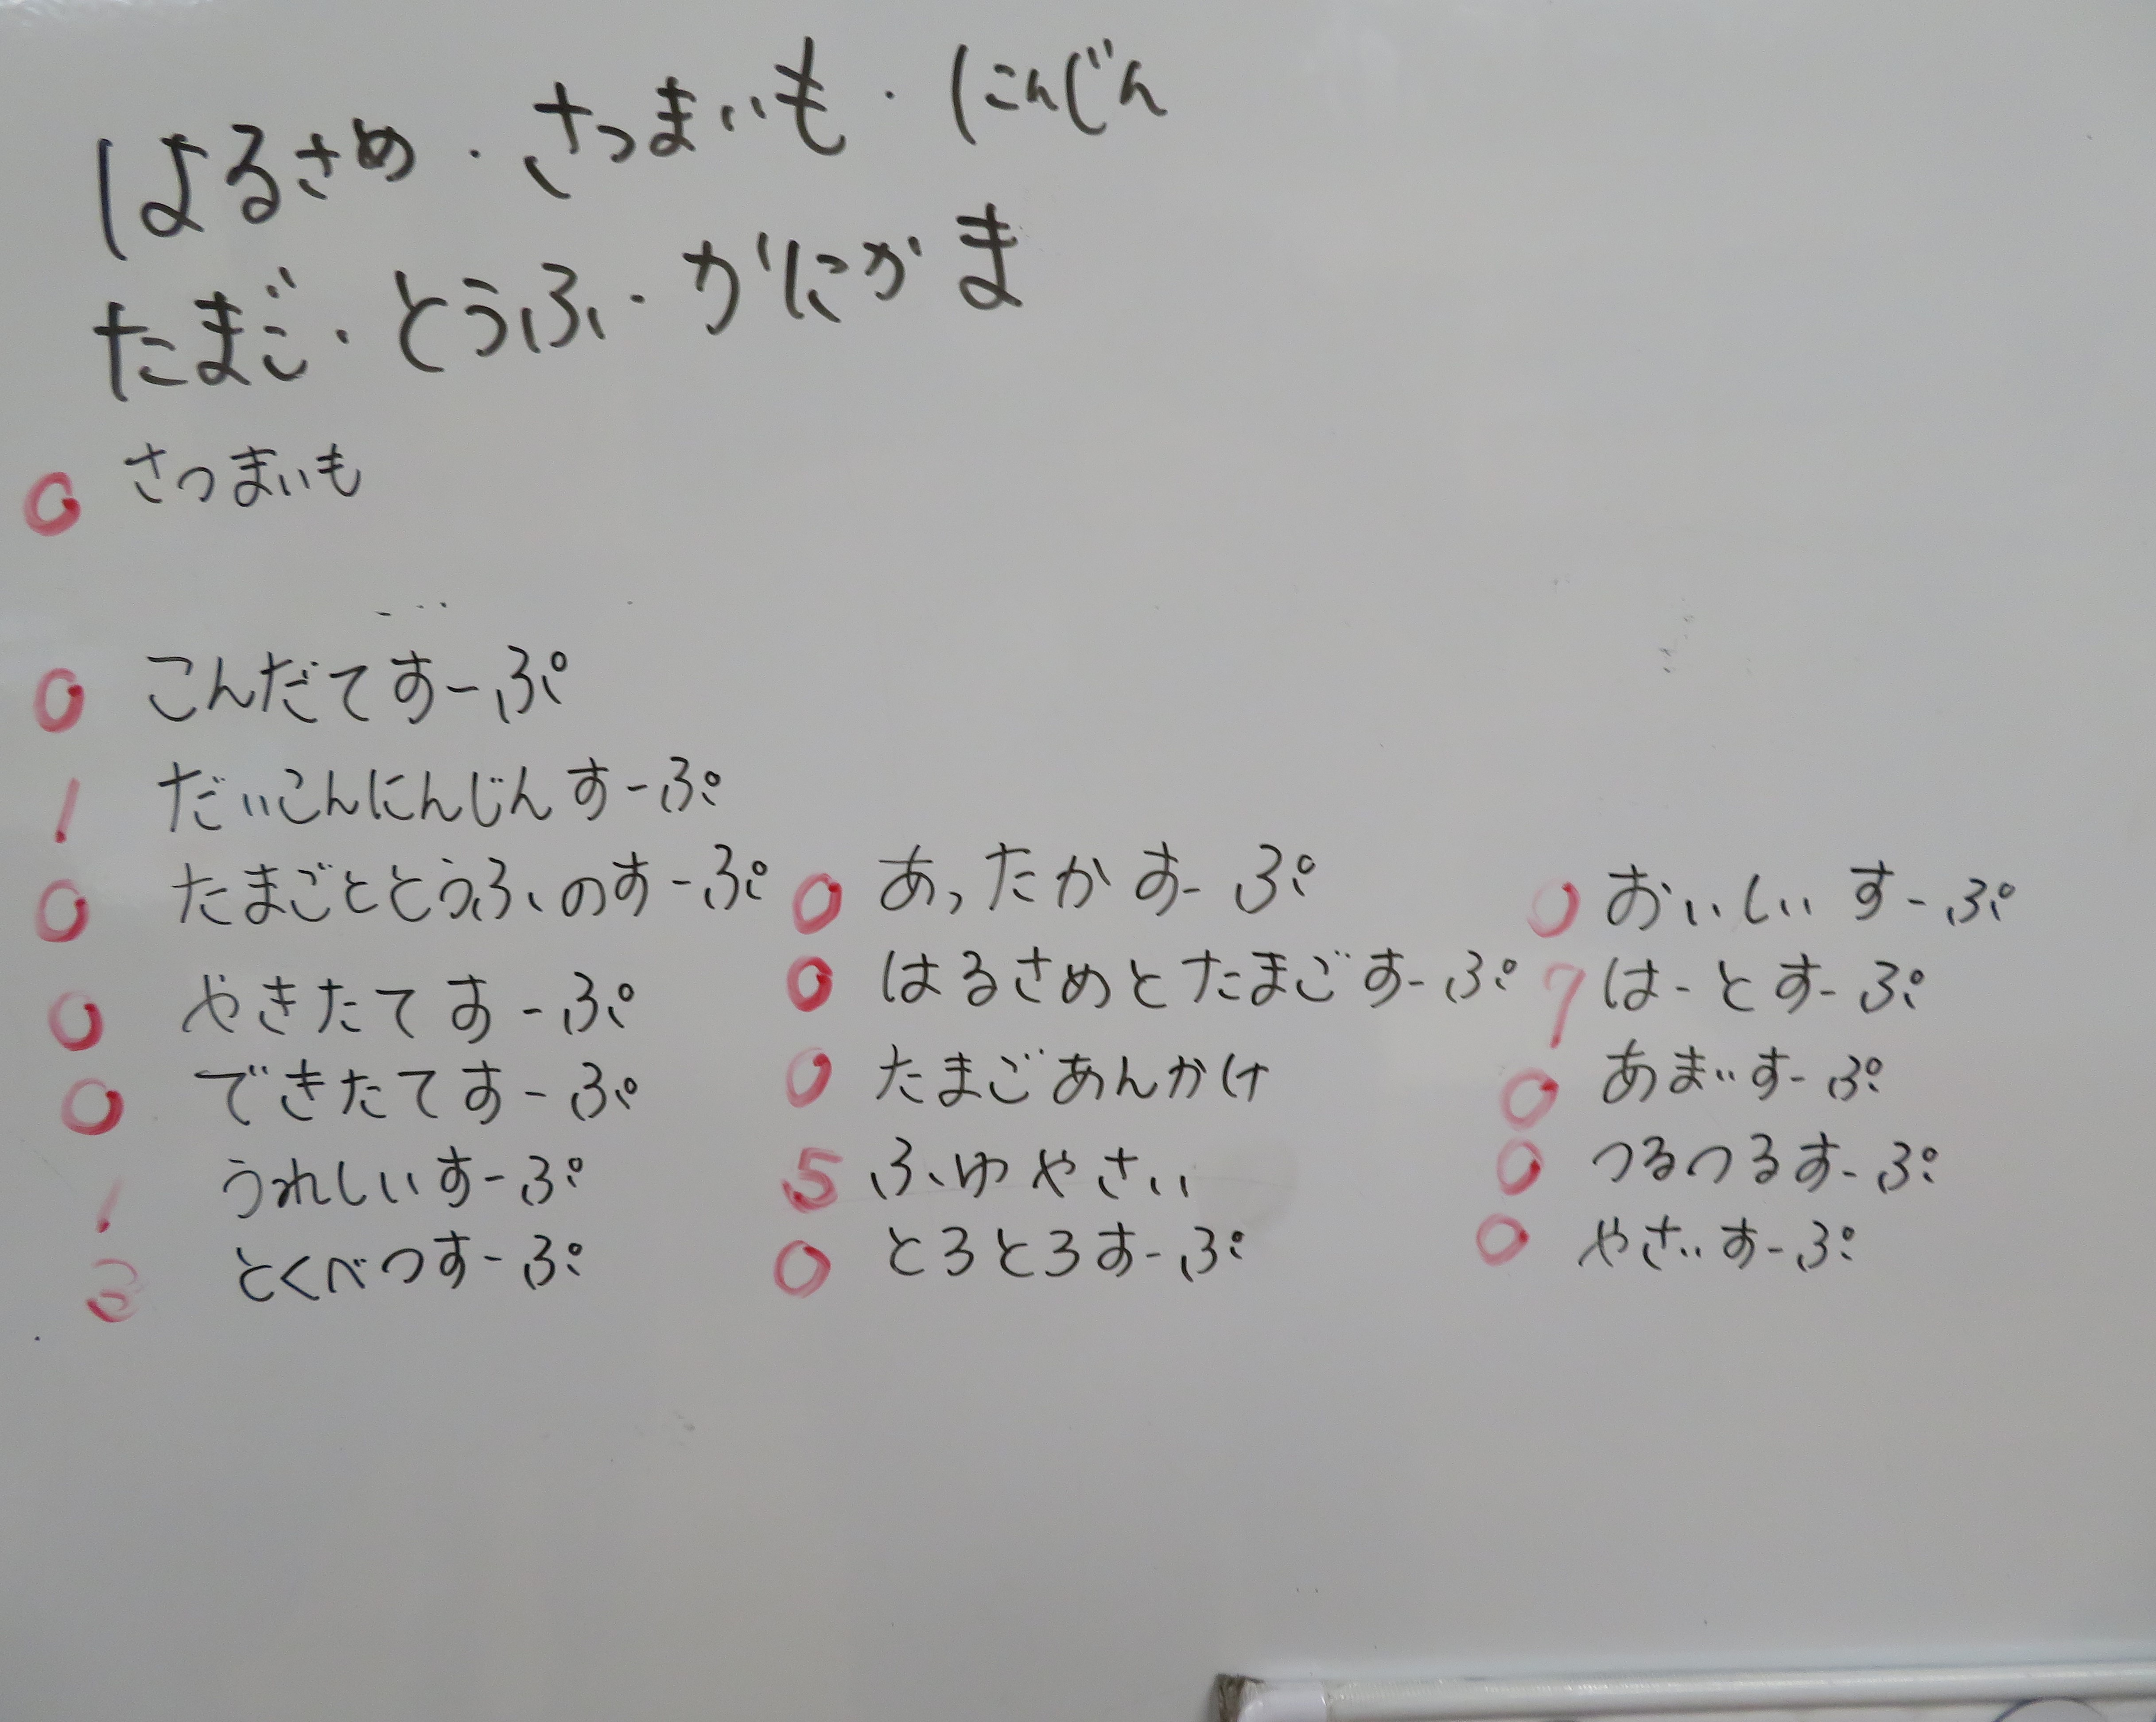 はるさめ・さつまいも・にんじん
たまご・とうふ・かにかま
0 さつまいも
0 こんだてすーぷ
1 だいこんにんじんすーぷ
0 たまごととうふのすーぷ
0 やきたてすーぷ
0 できたてすーぷ
1 うれしいすーぷ
3 とくべつすーぷ
0 あったかすーぷ
0 はるさめとたまごすーぷ
0 たまごあんかけ
5 ふゆやさい
0 とろとろすーぷ
0 おいしいすーぷ
7 はーとすーぷ
0 あまいすーぷ
0 つるつるすーぷ
0 やさいすーぷ